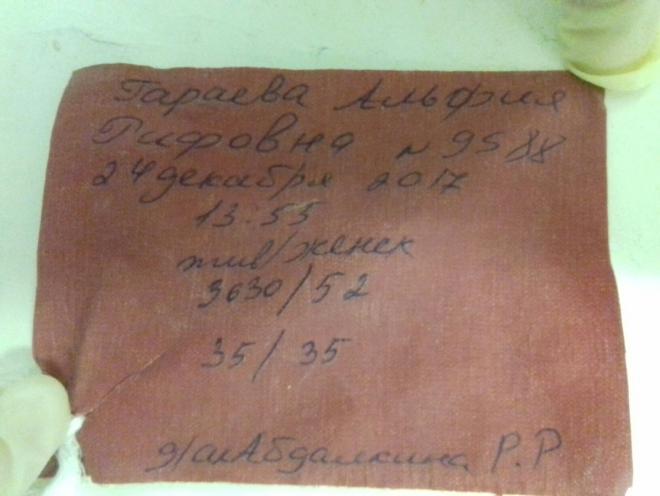 Гараева Альфия
Рифовна N 9588
24 декабря 2017
13:55
жив/женск
3630/52
35/35
д/ак Абдалкина Р.Р